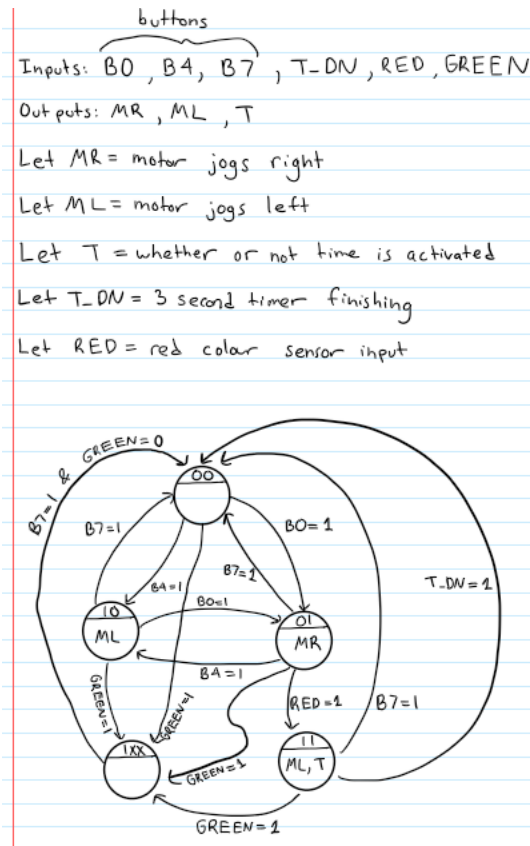 buttons
Inputs: B0, B4, B7, T_DN, RED, GREEN
Outputs: MR, ML, T
Let MR = motor jogs right
Let ML = motor jogs left
Let T = whether or not time is activated
Let T_DN = 3 second timer finishing
Let RED = red colour sensor input
B7=1 & GREEN=0
00
B7=1
B0=1
B4=1
B7=1
T_DN=1
B0=1
10
ML
01
MR
B4=1
GREEN=1
GREEN=1
RED=1
B7=1
1XX
11
ML, T
GREEN=1
GREEN=1